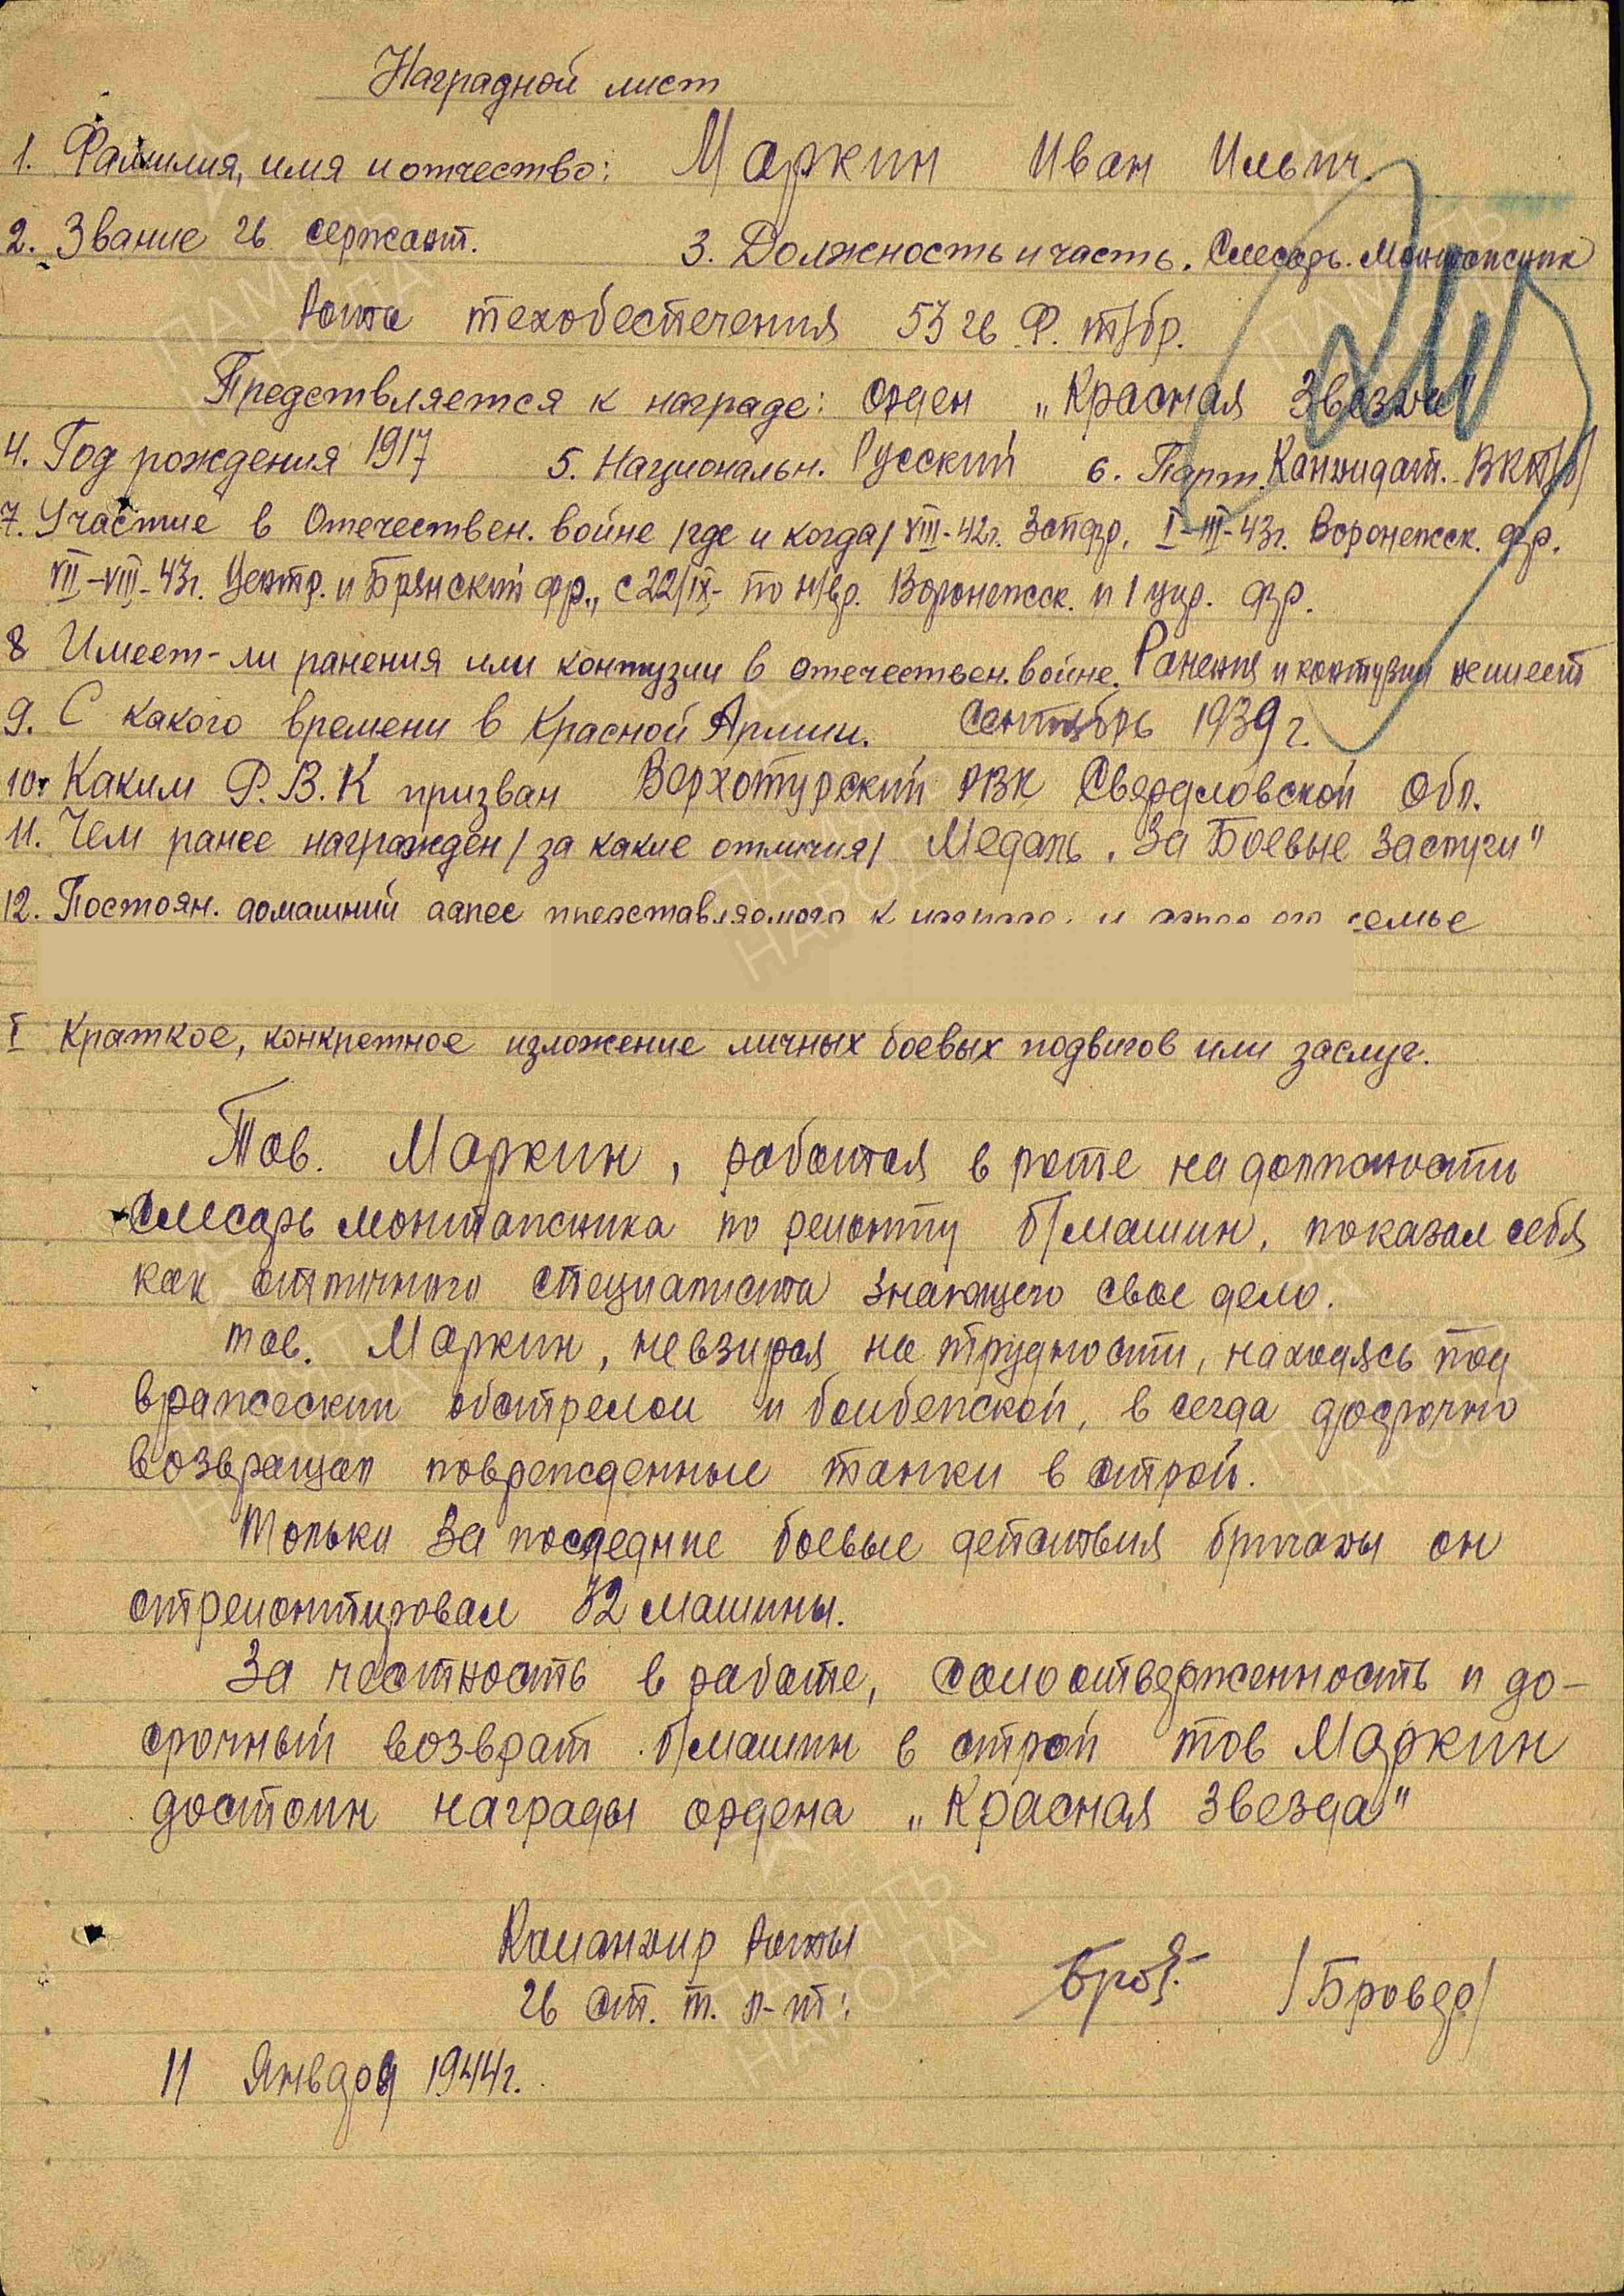 Наградной лист
1. Фамилия, имя и отчество: Маркин Иван Ильич.
2. Звание гв сержант. 3. Должность и часть. Слесарь-монтажник
Рота техобеспечения 53 гв Ф. т/бр.
Предствляется к награде: орден „Красная Звезда"
4. Год рождения 1917 5. Национальн. Русский 6. Парт. Кандидат. ВКП/б/
7. Участие в Отечествен. войне /где и когда/ VIII-42г. Запфр. I-III-43г. Воронежск. фр.
VII-VIII-43г. Центр. и Брянский фр., с 22/IX- по н/вр. Воронежск. и 1 укр. фр.
8 Имеет-ли ранения или контузии в отечествен. войне. Ранения и контузии не имеет
9. С какого времени в Красной Армии. Сентябрь 1939 г.
10. Каким Р.В.К призван Верхотурский РВК Свердловской Обл.
11. Чем ранее награжден /за какие отличия/ Медаль „За Боевые Заслуги"
12. Постоян. домашний адрес представляемого к семье
I Краткое, конкретное изложение личных боевых подвигов или заслуг.
Тов. Маркин, работая в роте на должности
слесарь монтажника по ремонту б/машин, показал себя
как отличного специалиста знающего свое дело.
тов. Маркин, невзирая на трудности, находясь под
вражеским обстрелом и бомбежкой, всегда досрочно
возвращал поврежденные танки в строй.
Только за последние боевые действия бригады он
отремонтировал 32 машины.
За честность в работе, самоотверженность и до-
срочный возврат б/машин в строй тов Маркин
достоин награды ордена „Красная Звезда"
Командир роты
гв ст. т. л-т: /Бровер/
11 Января 1944г.
ПАМЯТЬ НАРОДА